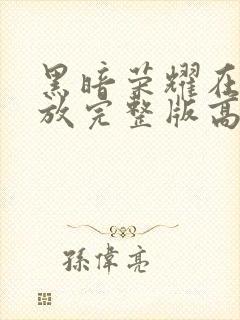 黑暗荣耀在
放完整版高
孫偉亮